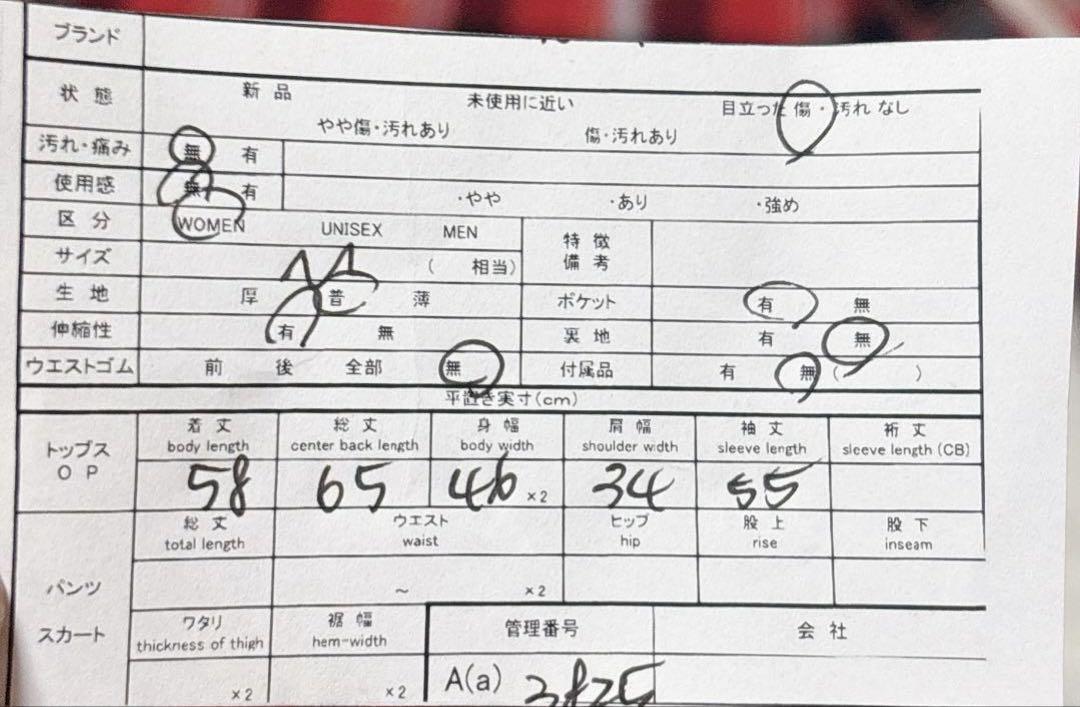 ブランド
状態 新品 未使用に近い 目立った傷・汚れなし
やや傷・汚れあり 傷・汚れあり
汚れ・痛み 無 有
使用感 無 有 ・やや ・あり ・強め
区分 WOMEN UNISEX MEN 特徴
備考
サイズ ( 相当)
生地 厚 普 薄 ポケット 有 無
伸縮性 有 無 裏地 有 無
ウエストゴム 前 後 全部 無 付属品 有 無 ( )
平置き実寸(cm)
トップス
OP
着丈 総丈 身幅 肩幅 袖丈 裄丈
body length center back length body width shoulder width sleeve length sleeve length (CB)
58 65 46 ×2 34 55
パンツ
スカート
総丈 ウエスト ヒップ 股上 股下
total length waist hip rise inseam
～ ×2
ワタリ 裾幅 管理番号 会社
thickness of thigh hem-width
×2 ×2 A(a)